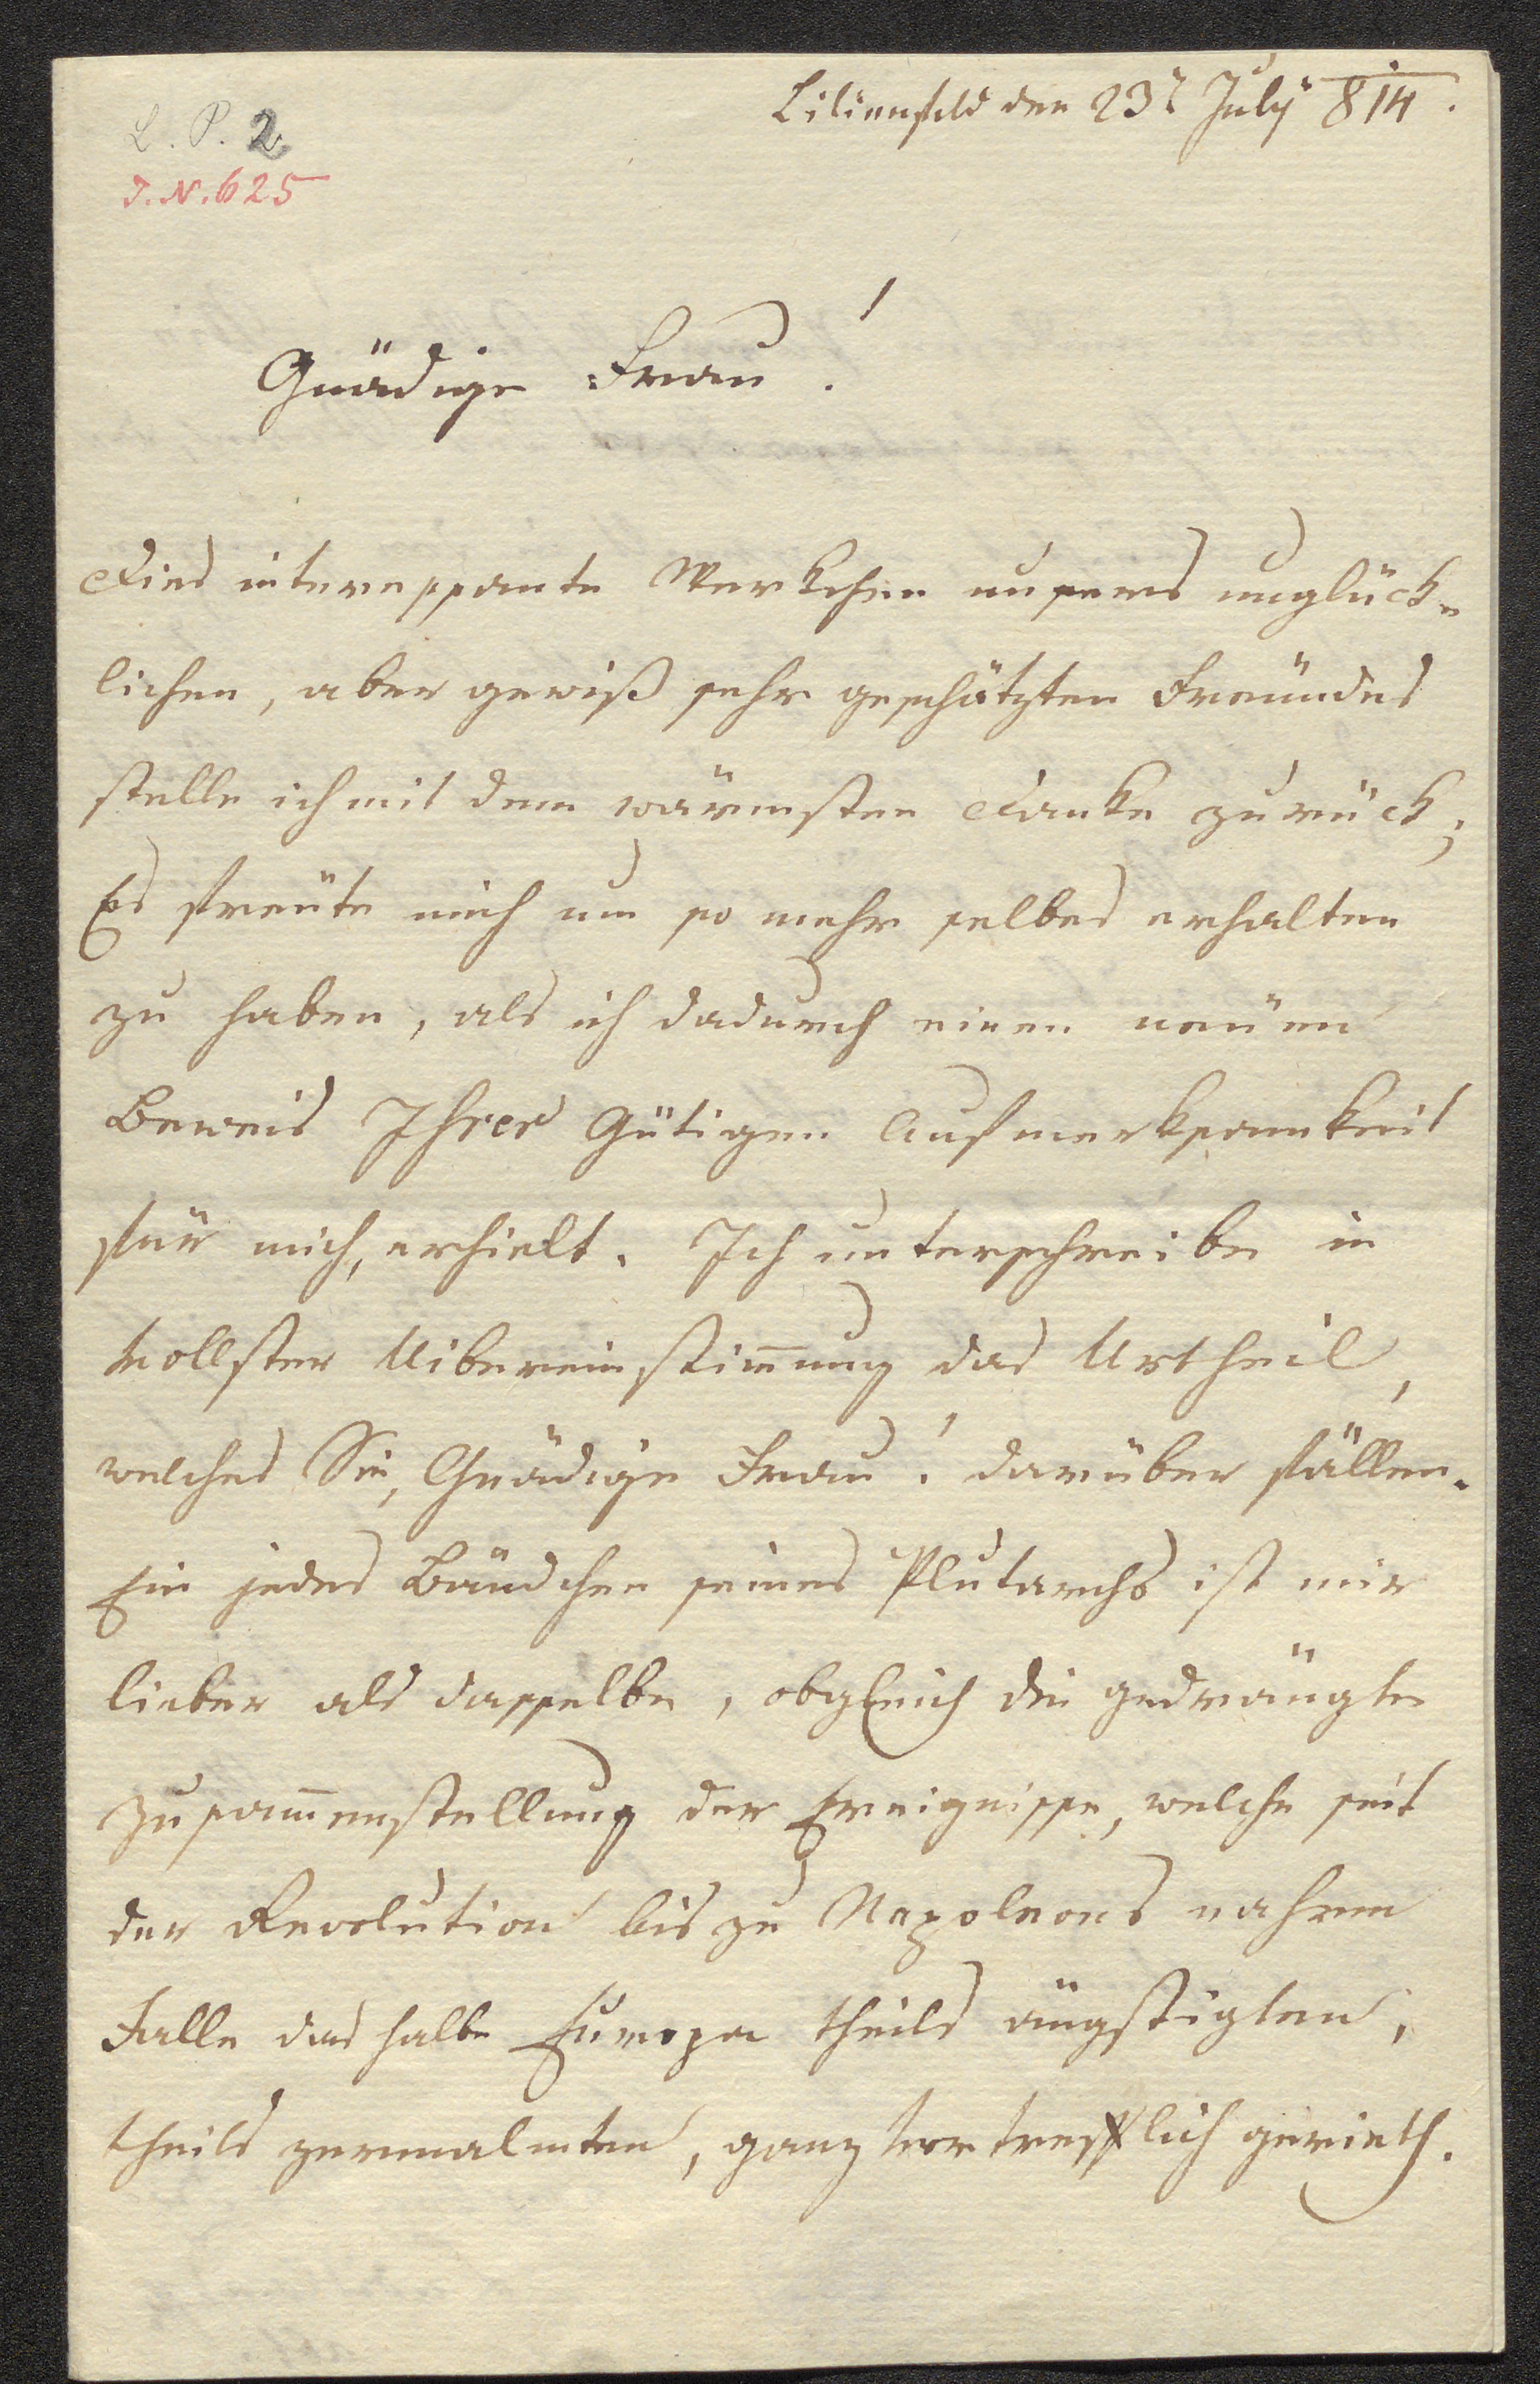 Lilienfeld den 23t July 814.
L. P. 2
J. N. 625
Gnädige Frau!
Dies interessante Werkchen unsers unglück-
lichen, aber gewiß sehr geschätzten Freündes
stelle ich mit dem wärmsten Danke zurück;
Es freüte mich um so mehr selbes erhalten
zu haben, als ich dadurch einen neüen
Beweis Ihrer Gütigen Aufmerksamkeit
für mich, erhielt. Ich unterschreibe in
vollster Uibereinstim̄ung das Urtheil,
welches Sie, Gnädige Frau! darüber fällen.
Ein jedes Bändchen seines Plutarchs ist mir
lieber als dasselbe, obgleich die gedrängte
Zusam̄enstellung der Ereignisse, welche seit
der Revolution bis zu Napoleons nahem
Falle das halbe Europa theils ängstigten,
theils zermalmten, ganz vortrefflich gerieth.